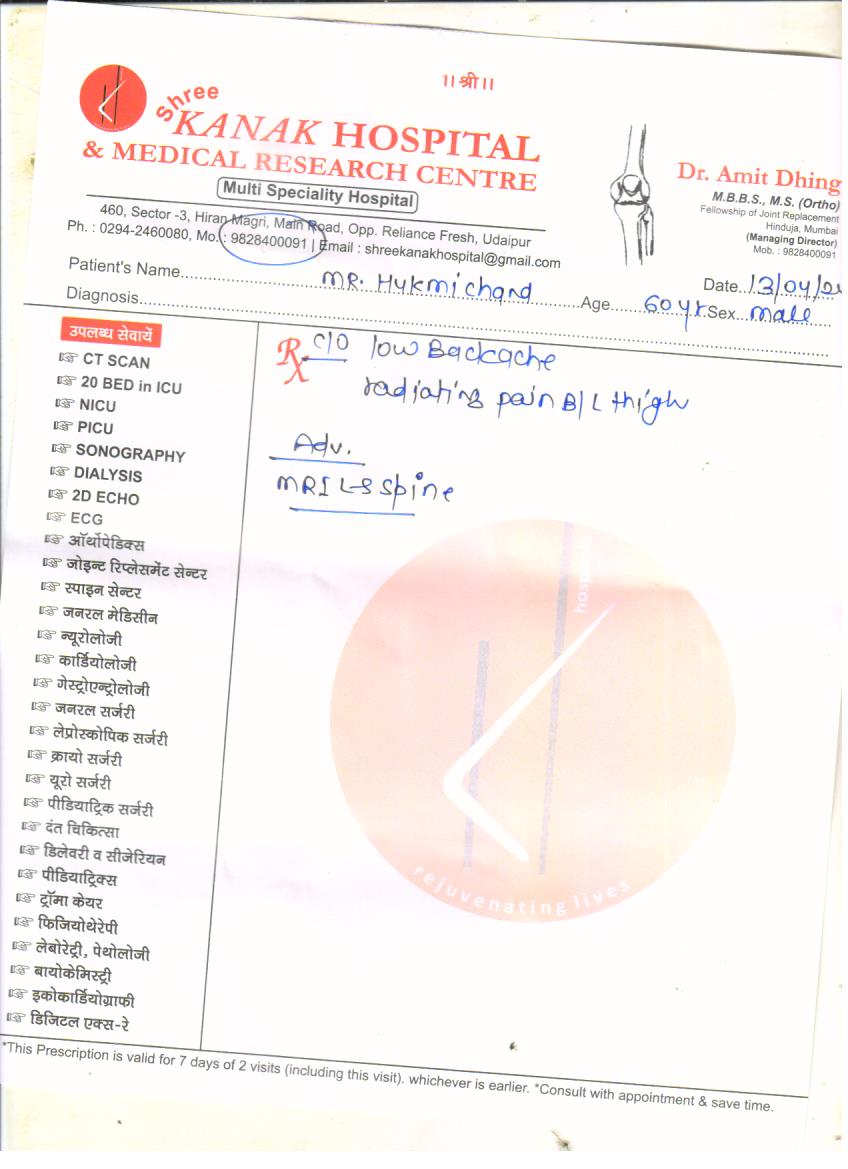 ।। श्री ।।
Shree
KANAK HOSPITAL
& MEDICAL RESEARCH CENTRE
Multi Speciality Hospital
460, Sector -3, Hiran Magri, Main Road, Opp. Reliance Fresh, Udaipur
Ph. : 0294-2460080, Mo. : 9828400091 | Email : shreekanakhospital@gmail.com
Dr. Amit Dhing
M.B.B.S., M.S. (Ortho)
Fellowship of Joint Replacement
Hinduja, Mumbai
(Managing Director)
Mob. : 9828400091
Patient's Name MR. Hukmichand Date 13/04/
Diagnosis Age 60 yr Sex male
उपलब्ध सेवायें
CT SCAN
20 BED in ICU
NICU
PICU
SONOGRAPHY
DIALYSIS
2D ECHO
ECG
ऑर्थोपेडिक्स
जोइन्ट रिप्लेसमेंट सेन्टर
स्पाइन सेन्टर
जनरल मेडिसीन
न्यूरोलोजी
कार्डियोलोजी
गेस्ट्रोएन्ट्रोलोजी
जनरल सर्जरी
लेप्रोस्कोपिक सर्जरी
क्रायो सर्जरी
यूरो सर्जरी
पीडियाट्रिक सर्जरी
दंत चिकित्सा
डिलेवरी व सीजेरियन
पीडियाट्रिक्स
ट्रॉमा केयर
फिजियोथेरेपी
लेबोरेट्री, पेथोलोजी
बायोकेमिस्ट्री
इकोकार्डियोग्राफी
डिजिटल एक्स-रे
Rx C/O low Backache
radiating pain B/L thigh
Adv.
MRI L-S Spine
hospital
rejuvenating lives
*This Prescription is valid for 7 days of 2 visits (including this visit). whichever is earlier. *Consult with appointment & save time.